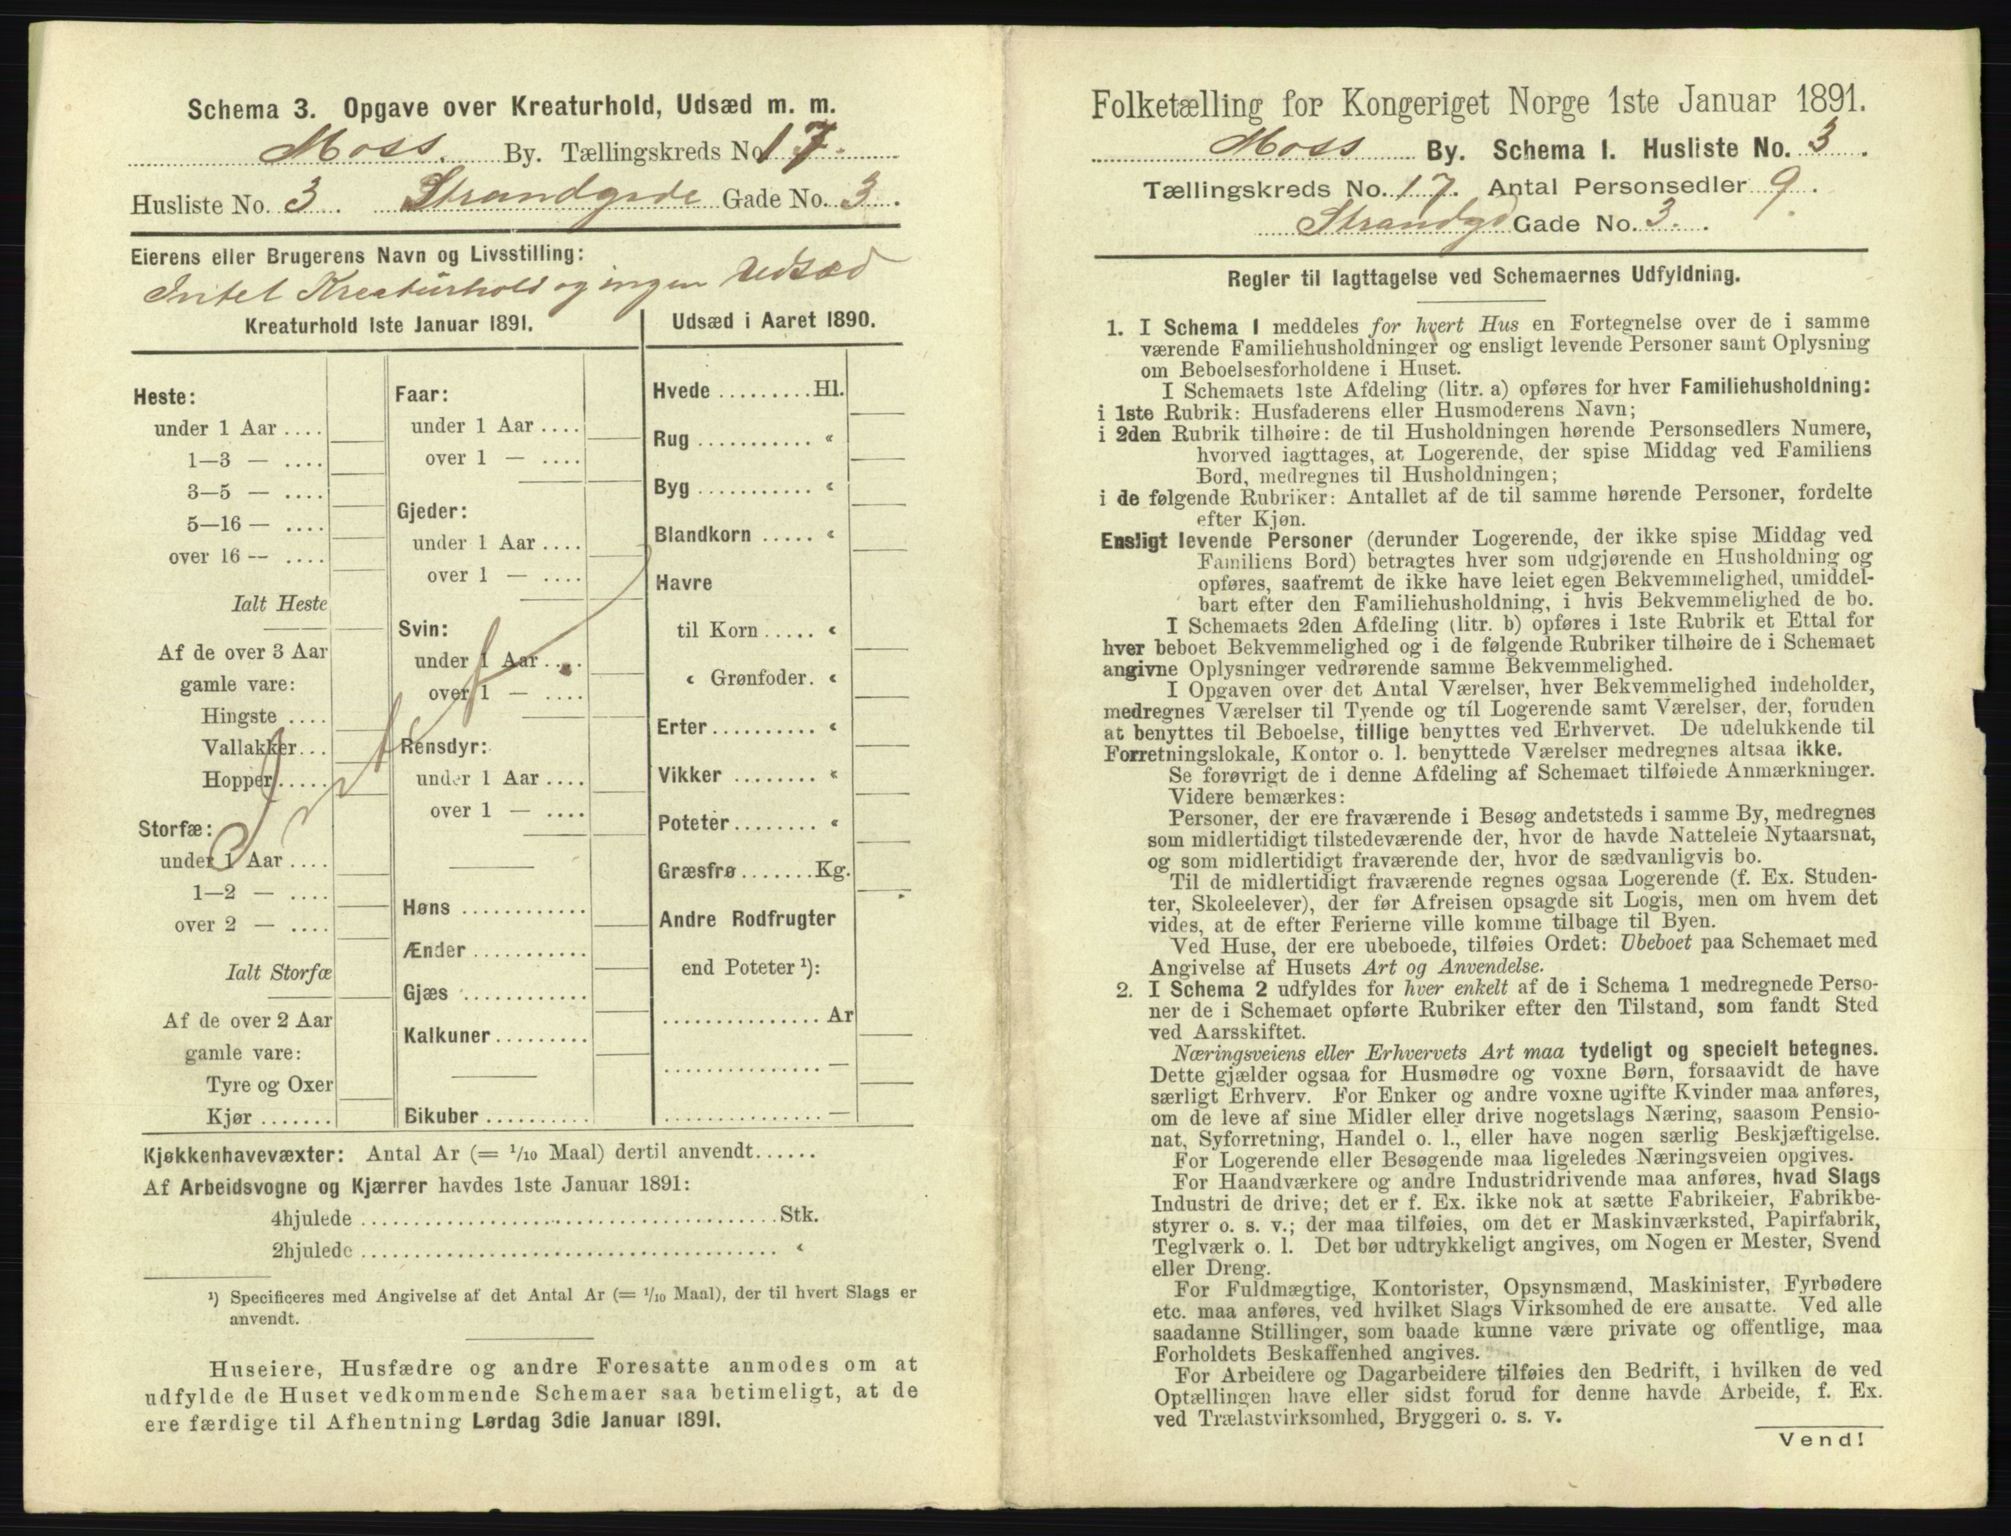 Schema 3. Opgave over Kreaturhold, Udsæd m. m.
Moss. By. Tællingskreds No. 17.
Husliste No. 3. Strandgade Gade No. 3.
Eierens eller Brugerens Navn og Livsstilling:
Intet Kreaturhold og ingen Udsæd
Kreaturhold 1ste Januar 1891.
Heste:
under 1 Aar ....
1—3 — ....
3—5 — ....
5—16 — ....
over 16 -- ....
Ialt Heste
Af de over 3 Aar
gamle vare:
Hingste ....
Vallakker...
Hopper.....
Storfæ:
under 1 Aar ....
1—2 — ....
over 2 — ....
Ialt Storfæ
Af de over 2 Aar
gamle vare:
Tyre og Oxer
Kjør .......
Faar:
under 1 Aar ....
over 1 — ....
Gjeder:
under 1 Aar ....
over 1 — ....
Svin:
under 1 Aar ....
over 1 — ....
Rensdyr:
under 1 Aar ....
over 1 — ....
Høns ............
Ænder ...........
Gjæs ............
Kalkuner .........
Bikuber ..........
Intet
Udsæd i Aaret 1890.
Hvede .........Hl.
Rug ........... «
Byg ........... «
Blandkorn ..... «
Havre
til Korn ..... «
« Grønfoder. «
Erter .......... «
Vikker ........ «
Poteter ........ «
Græsfrø .......Kg.
Andre Rodfrugter
end Poteter ¹):
...............Ar
............... —
............... —
Kjøkkenhavevæxter: Antal Ar (= 1/10 Maal) dertil anvendt......
Af Arbeidsvogne og Kjærrer havdes 1ste Januar 1891:
4hjulede ........................................Stk.
2hjulede ........................................ «
¹) Specificeres med Angivelse af det Antal Ar (= 1/10 Maal), der til hvert Slags er
anvendt.
Huseiere, Husfædre og andre Foresatte anmodes om at
udfylde de Huset vedkommende Schemaer saa betimeligt, at de
ere færdige til Afhentning Lørdag 3die Januar 1891.
Folketælling for Kongeriget Norge 1ste Januar 1891.
Moss By. Schema I. Husliste No. 3.
Tællingskreds No. 17. Antal Personsedler 9.
Strandgd Gade No. 3.
Regler til Iagttagelse ved Schemaernes Udfyldning.
1. I Schema I meddeles for hvert Hus en Fortegnelse over de i samme
værende Familiehusholdninger og ensligt levende Personer samt Oplysning
om Beboelsesforholdene i Huset.
I Schemaets 1ste Afdeling (litr. a) opføres for hver Familiehusholdning:
i 1ste Rubrik: Husfaderens eller Husmoderens Navn;
i 2den Rubrik tilhøire: de til Husholdningen hørende Personsedlers Numere,
hvorved iagttages, at Logerende, der spise Middag ved Familiens
Bord, medregnes til Husholdningen;
i de følgende Rubriker: Antallet af de til samme hørende Personer, fordelte
efter Kjøn.
Ensligt levende Personer (derunder Logerende, der ikke spise Middag ved
Familiens Bord) betragtes hver som udgjørende en Husholdning og
opføres, saafremt de ikke have leiet egen Bekvemmelighed, umiddel-
bart efter den Familiehusholdning, i hvis Bekvemmelighed de bo.
I Schemaets 2den Afdeling (litr. b) opføres i 1ste Rubrik et Ettal for
hver beboet Bekvemmelighed og i de følgende Rubriker tilhøire de i Schemaet
angivne Oplysninger vedrørende samme Bekvemmelighed.
I Opgaven over det Antal Værelser, hver Bekvemmelighed indeholder,
medregnes Værelser til Tyende og til Logerende samt Værelser, der, foruden
at benyttes til Beboelse, tillige benyttes ved Erhvervet. De udelukkende til
Forretningslokale, Kontor o. l. benyttede Værelser medregnes altsaa ikke.
Se forøvrigt de i denne Afdeling af Schemaet tilføiede Anmærkninger.
Videre bemærkes:
Personer, der ere fraværende i Besøg andetsteds i samme By, medregnes
som midlertidigt tilstedeværende der, hvor de havde Natteleie Nytaarsnat,
og som midlertidigt fraværende der, hvor de sædvanligvis bo.
Til de midlertidigt fraværende regnes ogsaa Logerende (f. Ex. Studen-
ter, Skoleelever), der før Afreisen opsagde sit Logis, men om hvem det
vides, at de efter Ferierne ville komme tilbage til Byen.
Ved Huse, der ere ubeboede, tilføies Ordet: Ubeboet paa Schemaet med
Angivelse af Husets Art og Anvendelse.
2. I Schema 2 udfyldes for hver enkelt af de i Schema 1 medregnede Perso-
ner de i Schemaet opførte Rubriker efter den Tilstand, som fandt Sted
ved Aarsskiftet.
Næringsveiens eller Erhvervets Art maa tydeligt og specielt betegnes.
Dette gjælder ogsaa for Husmødre og voxne Børn, forsaavidt de have
særligt Erhverv. For Enker og andre voxne ugifte Kvinder maa anføres,
om de leve af sine Midler eller drive nogetslags Næring, saasom Pensio-
nat, Syforretning, Handel o. l., eller have nogen særlig Beskjæftigelse.
For Logerende eller Besøgende maa ligeledes Næringsveien opgives.
For Haandværkere og andre Industridrivende maa anføres, hvad Slags
Industri de drive; det er f. Ex. ikke nok at sætte Fabrikeier, Fabrikbe-
styrer o. s. v.; der maa tilføies, om det er Maskinværksted, Papirfabrik,
Teglværk o. l. Det bør udtrykkeligt angives, om Nogen er Mester, Svend
eller Dreng.
For Fuldmægtige, Kontorister, Opsynsmænd, Maskinister, Fyrbødere
etc. maa anføres, ved hvilket Slags Virksomhed de ere ansatte. Ved alle
saadanne Stillinger, som baade kunne være private og offentlige, maa
Forholdets Beskaffenhed angives.
For Arbeidere og Dagarbeidere tilføies den Bedrift, i hvilken de ved
Optællingen have eller sidst forud for denne havde Arbeide, f. Ex.
ved Trælastvirksomhed, Bryggeri o. s. v.
Vend!